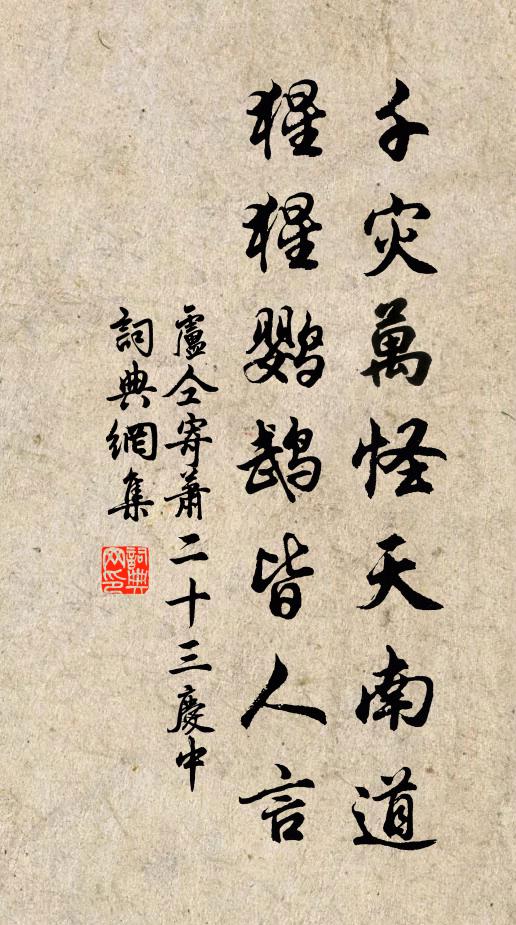 千災萬怪天南道
猩猩鹦鵡皆人言
盧仝寄蕭二十三慶中
詞典網集
詞典网印